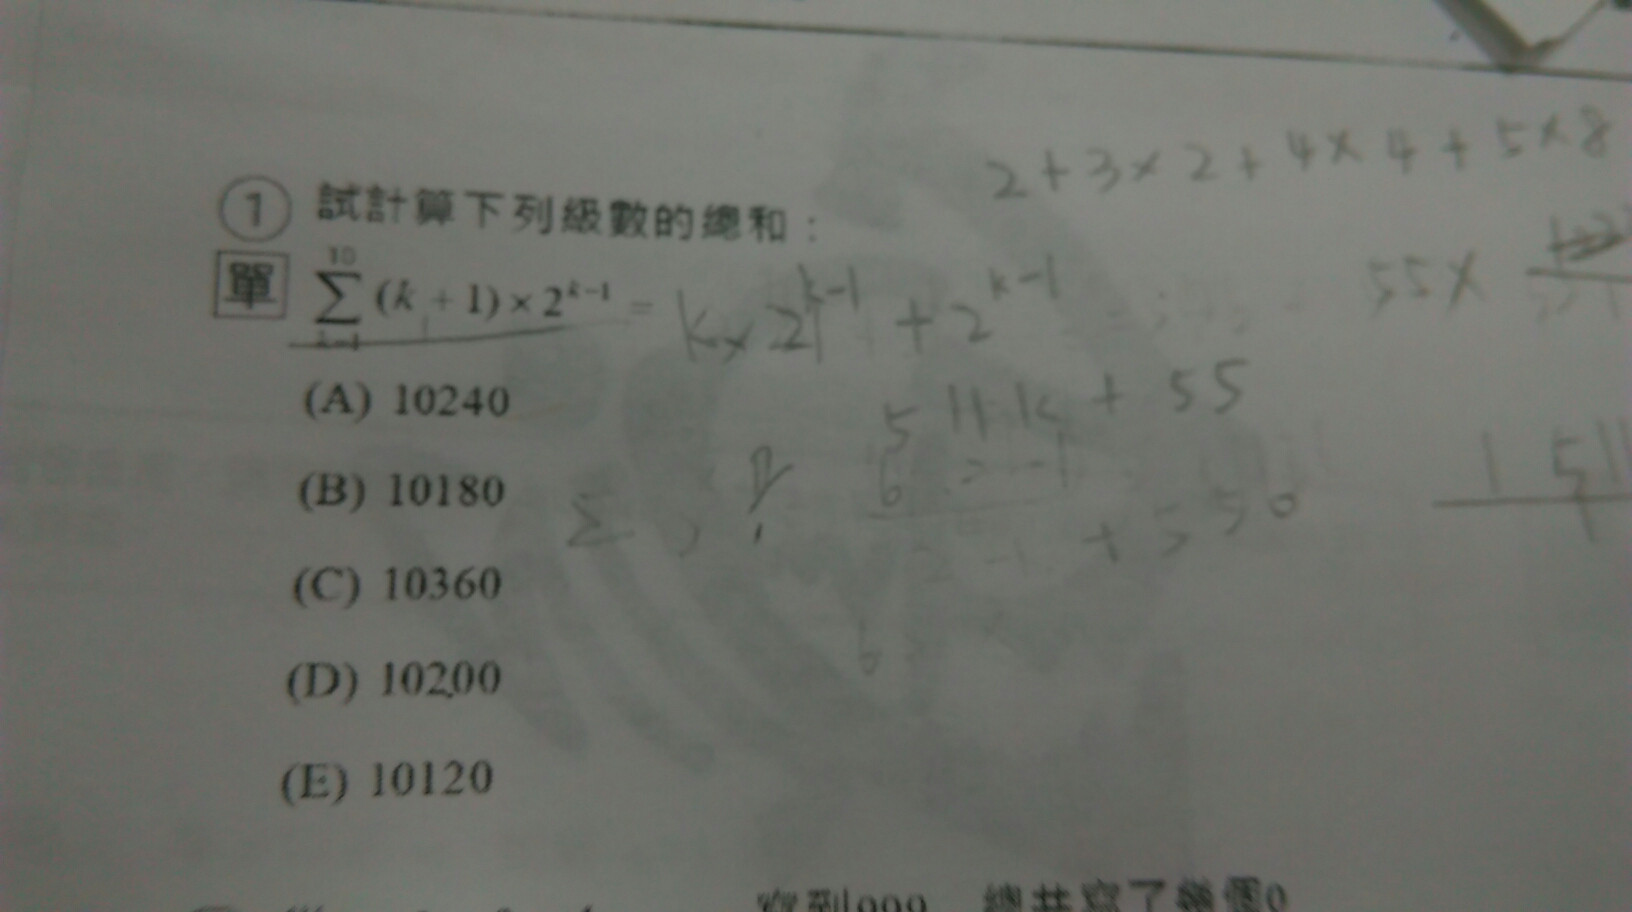 2+3×2+4×4+5×8
① 試計算下列級數的總和：
單 \sum_{k=1}^{10} (k+1)×2^{k-1} = k×2^{k-1} + 2^{k-1}
55×
(A) 10240
+ 55
(B) 10180
Σ
+ 550
(C) 10360
(D) 10200
(E) 10120
寫到999 總共寫了幾個0